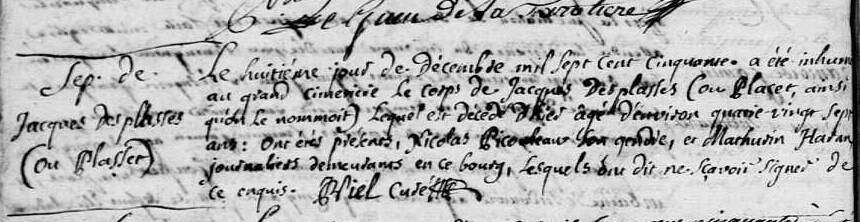 de la
Sep. de.
Jacques Desplasses
(ou Plasset)
Le huitieme jour de décembre mil sept cent cinquante. a été inhumé
au grand cimetiere le corps de Jacques Desplasses (ou Placet, ainsi
qu'on le nommoit) Lequel est décédé d'hier âgé d'environ quatre vingt sept
ans: Ont étés présents, Nicolas son gendre, et Mathurin
journaliers demeurants en ce bourg, Lesquels ont dit ne sçavoir signer de
ce enquis. Viel Curé